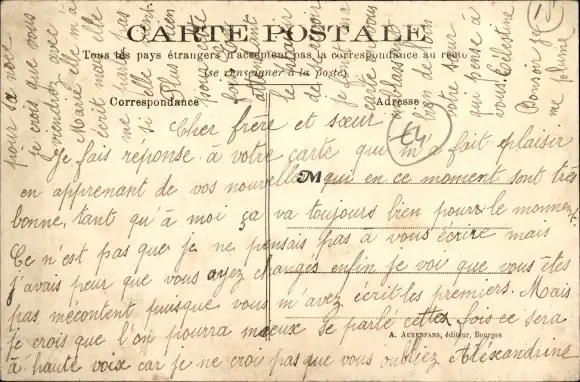 CARTE POSTALE
Tous les pays étrangers n'acceptent pas la correspondance au recto
(se renseigner à la poste)
Correspondance
Adresse
Cher frere et sœur
Je fais réponse à votre carte qui m'a fait plaisir
en apprenant de vos nouvelles qui en ce moment sont très
bonne, tant qu'à moi ça va toujours bien pour le moment.
Ce n'est pas que je ne pensais pas à vous écrire mais
j'avais peur que vous ayez changés enfin je voi que vous êtes
pas mécontent puisque vous m'avez écrit les premiers. Mais
je crois que l'on pourra mieux se parlé cettes fois ce sera
à haute voix car je ne croi pas que vous oubliez Aléxandrine
M
A. AUXENFANS, éditeur, Bourges
pour sa noce
je crois que vous
viendrez avec
Marie elle m'a
écrit mais elle
me parle pas
si elle vient
Plus rien
pour cette
attendant
le plaisir
de
je
carte à vous
embrassant
bien de loin
votre sœur
qui pense à
vous Célestine
Bonsoir je
me plume
15